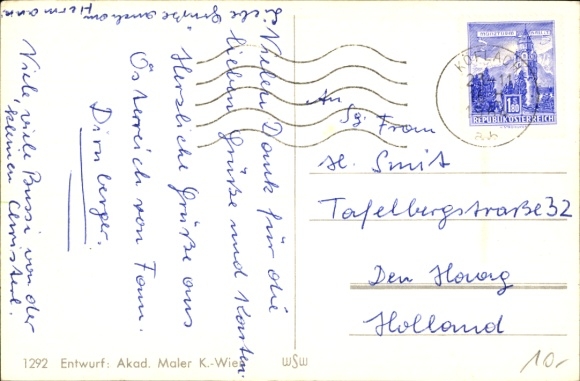 Liebe Grüße auch von
Hermann.
Vielen Dank für die
lieben Grüße und Karten.
Herzliche Grüße aus
Österreich von Fam.
Dirnberger.
Viele, viele Bussi von der
kleinen Christerl.
MÜNZTURM HALL
1.80
REPUBLIK ÖSTERREICH
An
Sg. Frau
H. Smit
Tafelbergstraße 32
Den Haag
Holland
10.-
1292 Entwurf: Akad. Maler K.-Wien
WSW